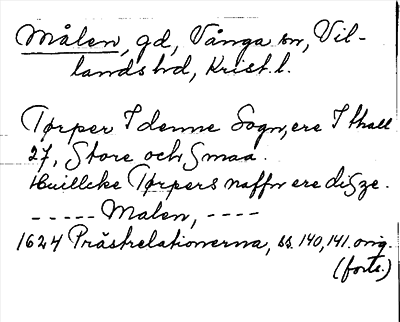 Målen, gd, Vånga sn, Vil-
lands hd, Krist. l.
Tørper I denne Sogn, ere I thall
27, Store och Smaa.
Huillcke Tørpers naffn ere diSze.
----- Malen, ----
1624 Prästrelationerna, ss. 140, 141. orig.
(forts.)